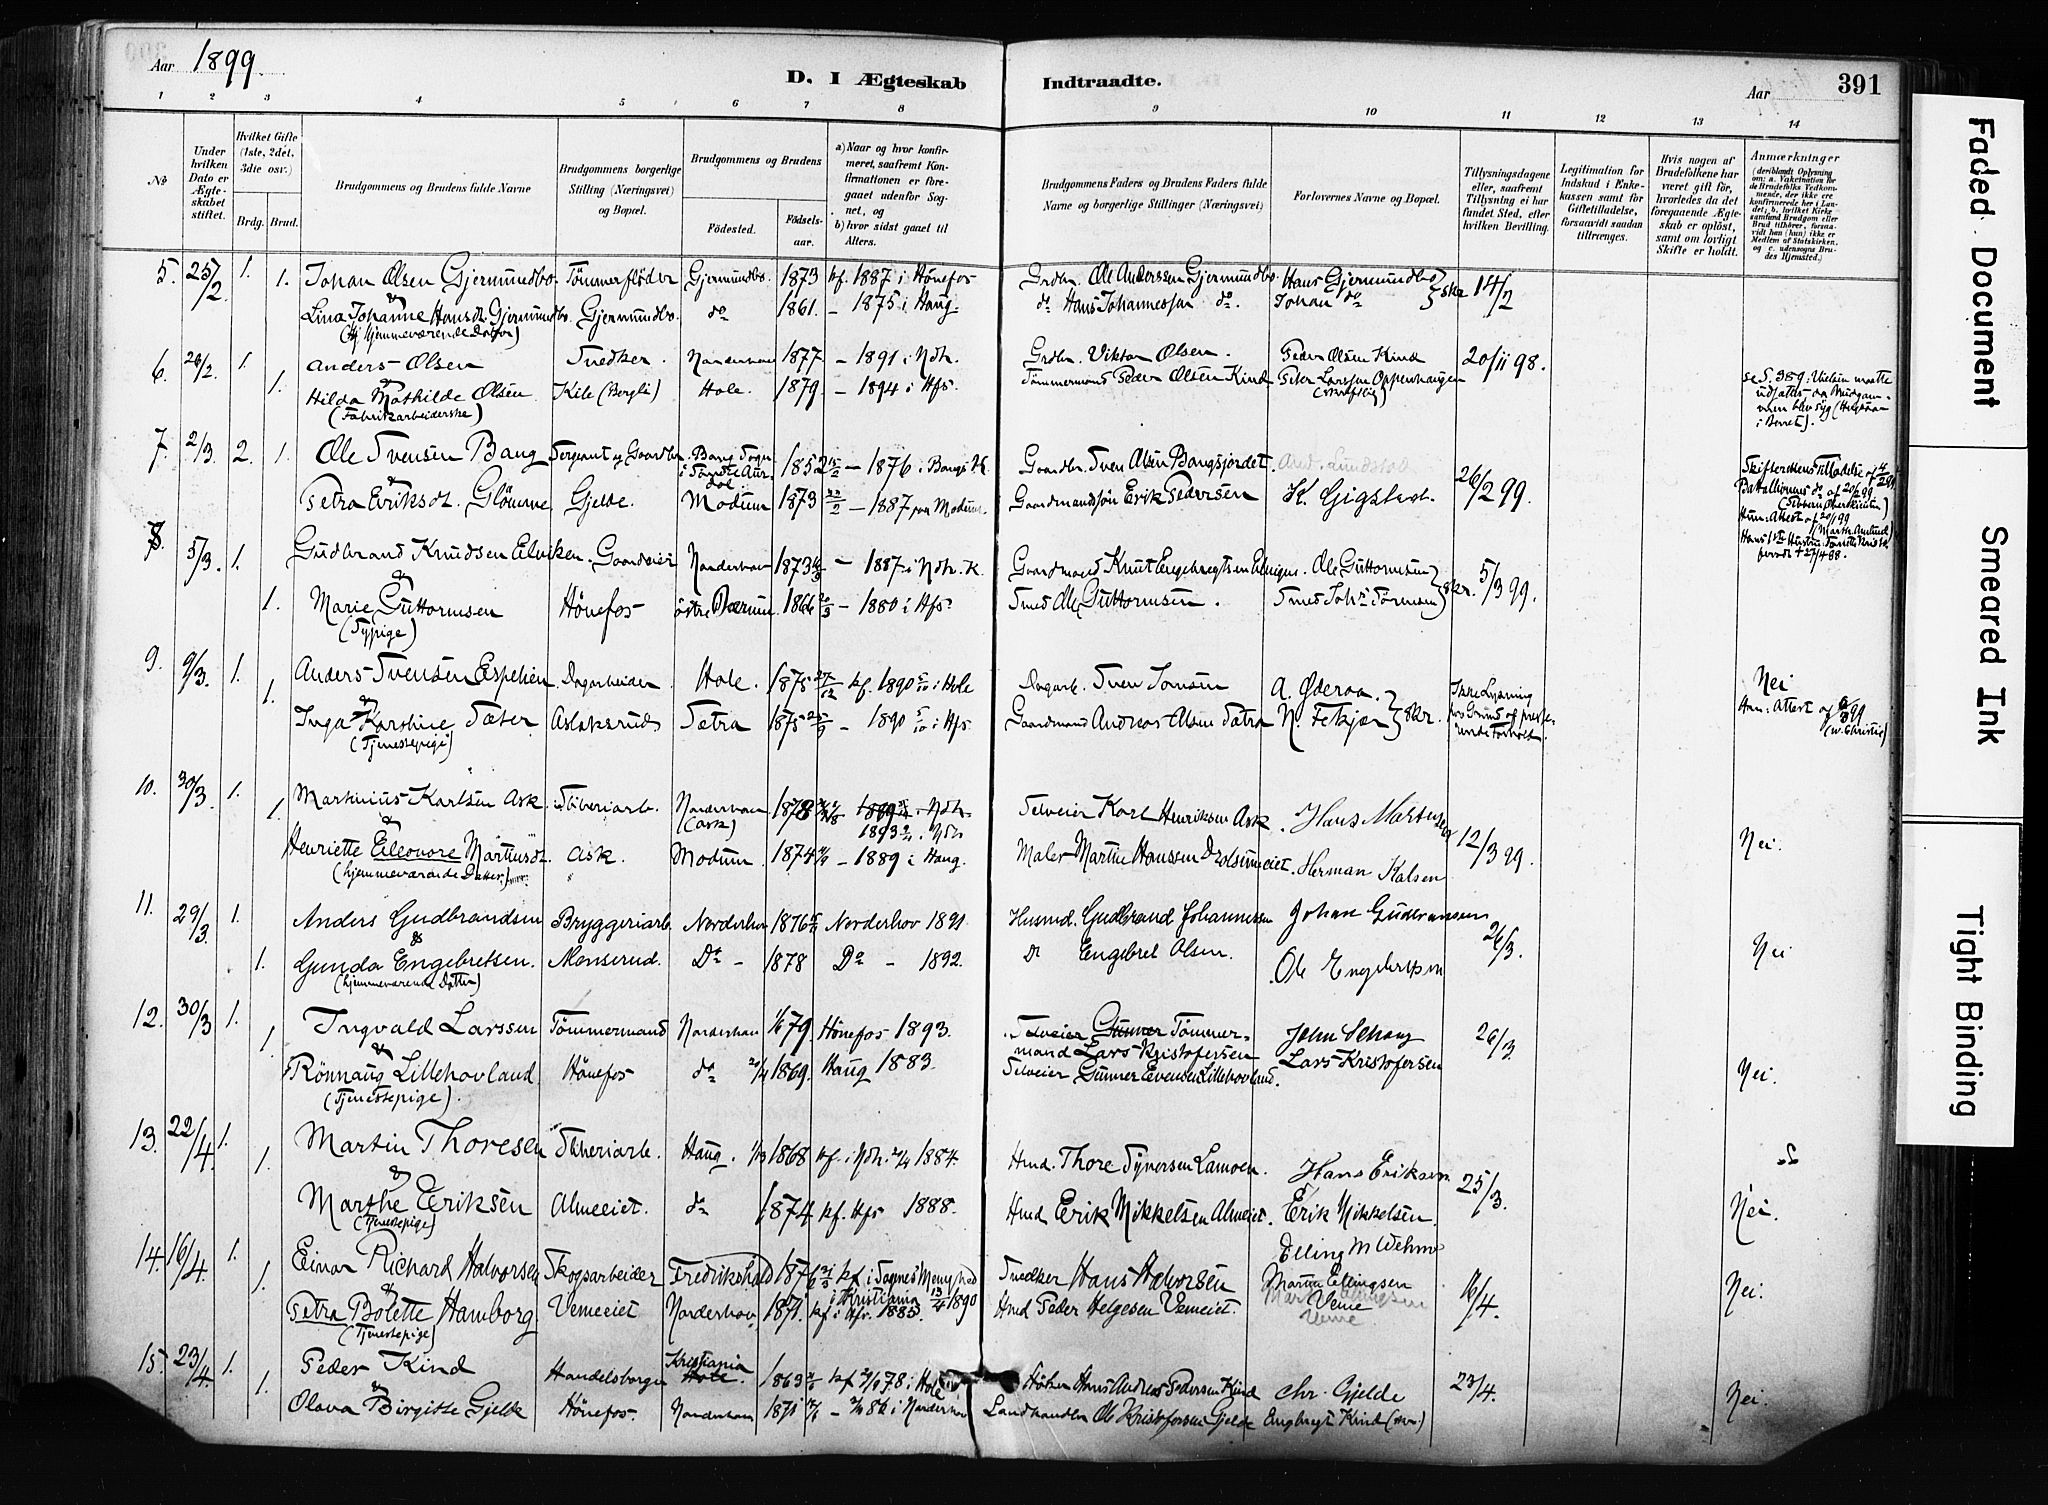 Aar 1899.
D. I Ægteskab Indtraadte.
Aar
391
1 2 3 4 5 6 7 8 9 10 11 12 13 14
No
Under hvilken Dato er Ægteskabet stiftet.
Hvilket Gifte (1ste, 2det, 3die osv.)
Brdg. Brud.
Brudgommens og Brudens fulde Navne
Brudgommens borgerlige Stilling (Næringsvei) og Bopæl.
Brudgommens og Brudens
Födested.
Födselsaar.
a) Naar og hvor konfirmeret, saafremt Konfirmationen er foregaaet udenfor Sognet, og
b) hvor sidst gaaet til Alters.
Brudgommens Faders og Brudens Faders fulde Navne og borgerlige Stillinger (Næringsvei)
Forlovernes Navne og Bopæl.
Tillysningsdagene eller, saafremt Tillysning ei har fundet Sted, efter hvilken Bevilling.
Legitimation for Indskud i Enkekassen samt for Giftetilladelse, forsaavidt saadan tiltrænges.
Hvis nogen af Brudefolkene har været gift för, hvorledes da det foregaaende Ægteskab er oplöst, samt om lovligt Skifte er holdt.
Anmærkninger
(deriblandt Oplysning om: a. Vakcination for de Brudefolks Vedkommende, der ikke ere konfirmerede her i Landet; b. hvilket Kirkesamfund Brudgom eller Brud tilhörer, forsaavidt han (hun) ikke er Medlem af Statskirken, og c. udensogns Brudes Hjemsted.)
5. 25/2. 1. Johan Olsen Gjermundbo. Tömmerflöder Gjermundbo. 1873 kf. 1887 i Hönefos Grdbr. Ole Anderssen Gjermundbo. Hans Gjermundbo 14/2
1. & Lina Johanne Hansdt. Gjermundbo. Gjermundbo. do 1861. - 1875 i Haug. do Hans Johannessen do. Johan do skr
(hjemmeværende Datter)
6. 26/2. 1. Anders Olsen Snedker. Norderhov 1877 - 1891 i Ndh. Grdbr. Viktor Olsen. Peder Olsen Kind 20/11 98.
1. & Hilda Mathilde Olsen Kile (Bergli) Hole. 1879. - 1894 i Hfs. Tömmermand Peder Olsen Kind Peter Larssen Oppenhaugen
(Fabrikarbeiderske) (skriftlig)
se S. 389: Vielsen maatte udsættes da Brudgommen blev syg
7. 2/3. 2. 1. Ole Svensen Bang Sergeant og Gaardbr. Bang Sogn i Söndre Aurdal. 1852 - 1876 i Bangs K. Gaardbr. Sven Olsen Bangsjordet. 26/2 99.
Petra Eriksdt. Glömme Gjelde. Modum 1873 - 1887 paa Modum. Gaardmandssön Erik Pedersen K. Gigstad.
8. 5/3. 1. Gudbrand Knudsen Elviken. Gaardeier Norderhov 1873 - 1887 i Ndh. K. Gaardmand Knut Engebregtsen Ole Guttormsen 5/3 99.
1. & Marie Guttormsen Hönefos östre Bærum 1866 - 1880 i Hfs. Smed Ole Guttormsen. Smed Joh. skr.
(Sypige)
9. 9/3. 1. Anders Svensen Espelien. Dagarbeider. Hole. 1875 27/12 kf. 1890 5/10 i Hole Dagarb. Sven Jonsen A. Öderaa. Nei
1. & Inga Karstine Sæter Aslaksrud Sætra 1875 - 1890 5/10 i Hfs. Gaardmand Andreas Olsen Sætra N. Fekjær skr.
(Tjenestepige)
10. 30/3. 1. Martinius Karlsen Ask. Sliberiarb. Norderhov (Ask) 1878 1893 i Ndh. Selveier Karl Henriksen Ask. Hans Martinsen 12/3 99
1. & Henriette Eleonore Martinsdt. Ask. Modum. 1874 - 1889 i Haug. Maler Martin Hanssen Herman Kalsen Nei.
(hjemmeværende Datter)
11. 29/3. 1. Anders Gudbrandsen Bryggeriarb. Norderhov 1876 Norderhov 1891 Husmd. Gudbrand Johannessen Johan Gudbransen 26/3.
1. & Gunda Engebretsen. Monserud. Do - 1878 Do - 1892. Do Engebret Olsen. Ole Engebretsen Nei
(hjemmeværende Datter)
12. 30/3 1. Ingvald Larssen Tömmermand Norderhov 79. Hönefos 1893. Selveier Gunner Tömmermand Lars Kristofersen John Schong 26/3
1. & Rönnaug Lillehovland. Hönefos do 1869. Haug 1883. Selveier Gunner Evensen Lillehovland. Lars Kristofersen Nei.
(Tjenestepige).
13. 22/4. 1. Martin Thoresen Sliberiarb. Haug. 1868 kf. i Ndh. 1884. Hmd. Thore Syversen Lamoen. Hans Eriksen 25/3.
1. & Marthe Eriksen Almeeiet. do 1874 kf. Hfs 1888. Hmd Erik Mikkelsen Almeiet. Erik Mikkelsen. Nei.
(Tjenestepige)
14. 16/4. 1. Einar Richard Halvorsen Skogsarbeider Fredrikshald 1876 kf. i Sagnes Menighed i Kristiania 13/4 1890 Snedker Hans Halvorsen Elling M Wehme 16/4.
1. & Petra Bolette Hamborg Vemeeiet Norderhov. 1871. kf. i Hfs. 1885. Hmd Peder Helgesen Vemeiet. Martin Ellingsen Veme Nei.
(Tjenestepige)
15. 23/4. 1. Peder Kind Handelsborger Kristiania Hole. 1863 kf 78 i Hole Höker Hans Andreas Pedersen Kind Chr. Gjelde 23/4.
1. & Olava Birgitte Gjelde Hönefos. Norderhov 1871 - 86 i Norderhov Landhandler Ole Kristofersen Gjelde Engbregt Kind Nei.
Faded Document
Smeared Ink
Tight Binding